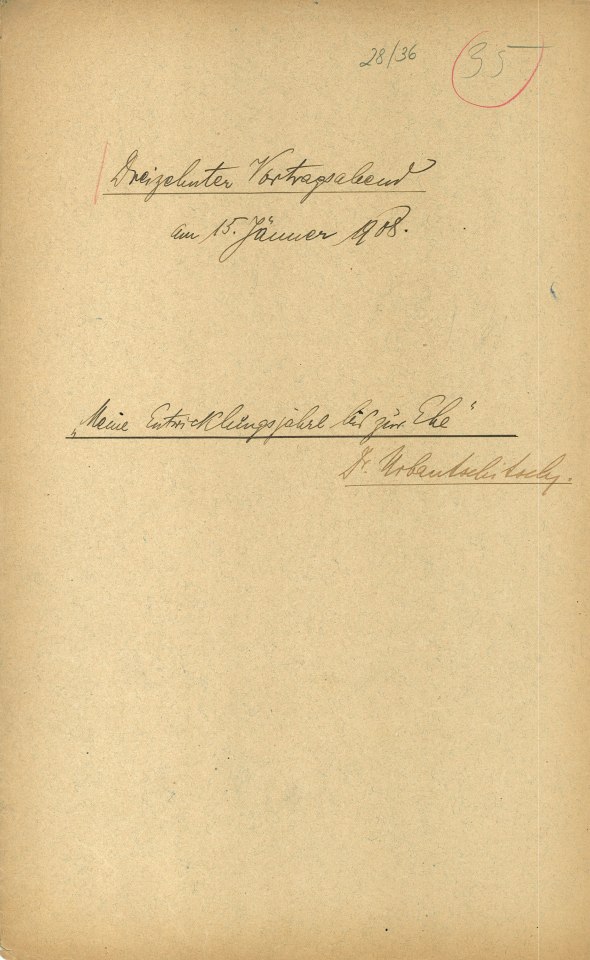 28/36
35
Dreizehnter Vortragsabend
am 15. Jänner 1908.
„Meine Entwicklungsjahre bis zur Ehe"
Dr. Urbantschitsch.